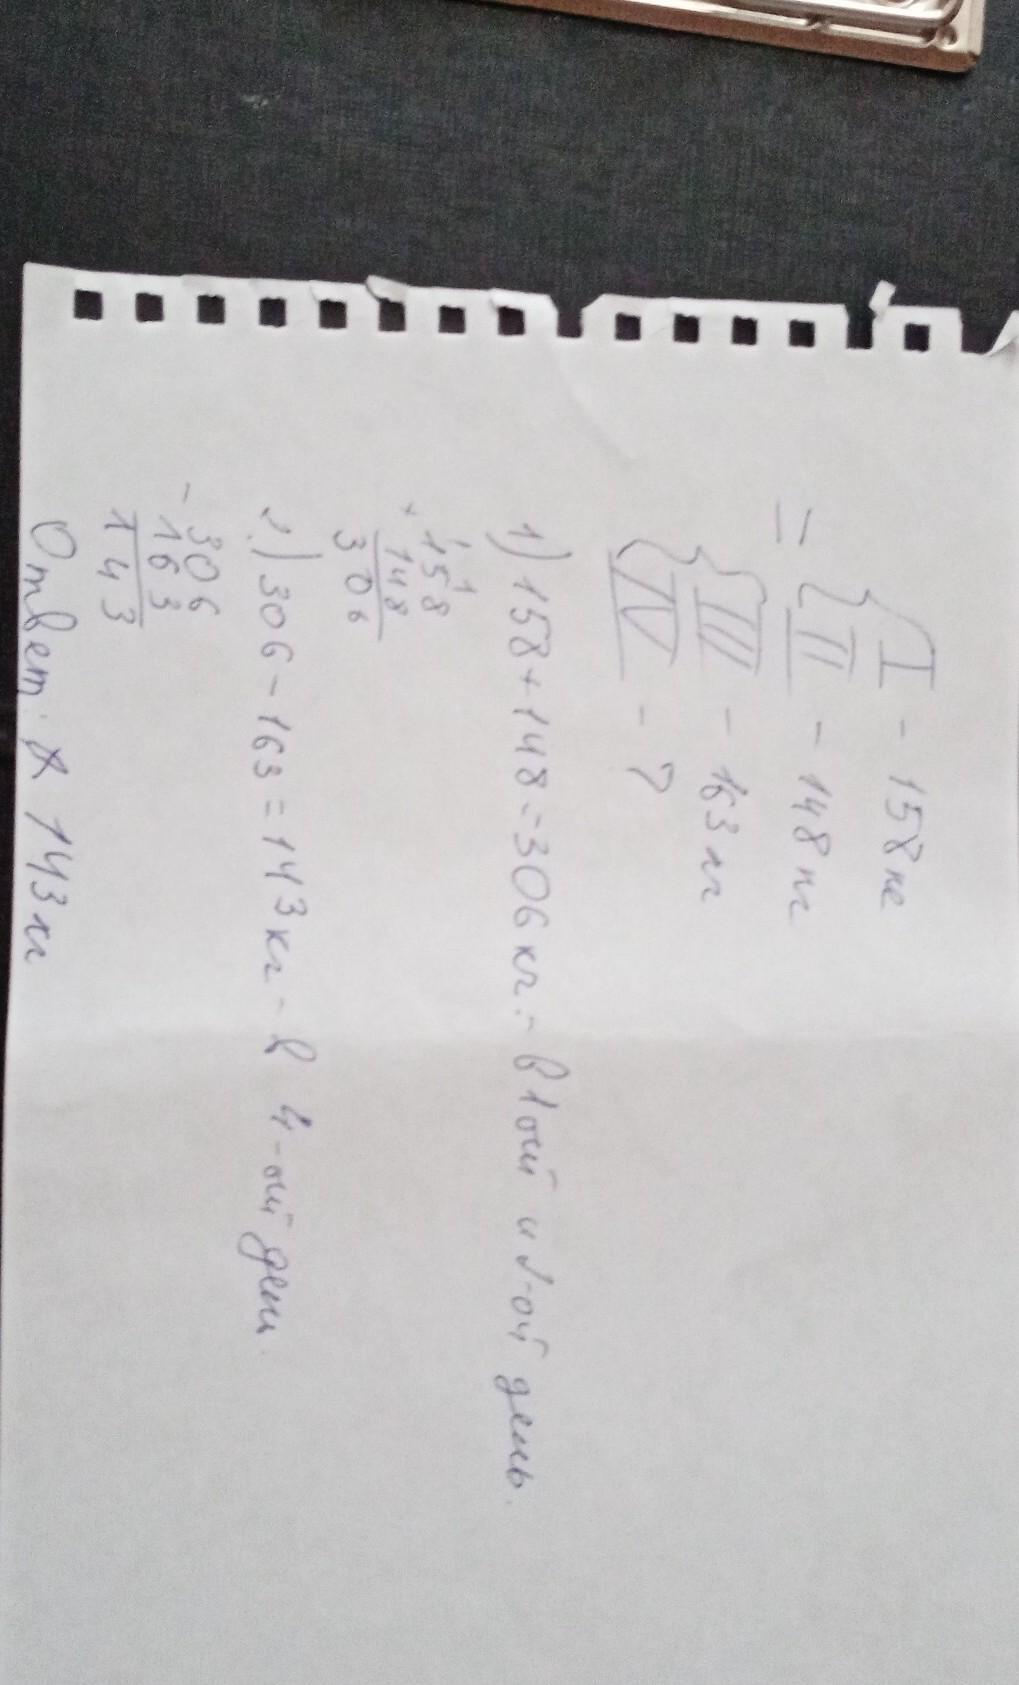 I - 158 кг
= II - 148 кг
III - 163 кг
IV - ?
1) 158+148=306 кг.- в 1ой и 2-ой день.
+ 158
148
306
2.) 306-163=143 кг - в 4-ый день.
- 306
163
143
Ответ: 143 кг